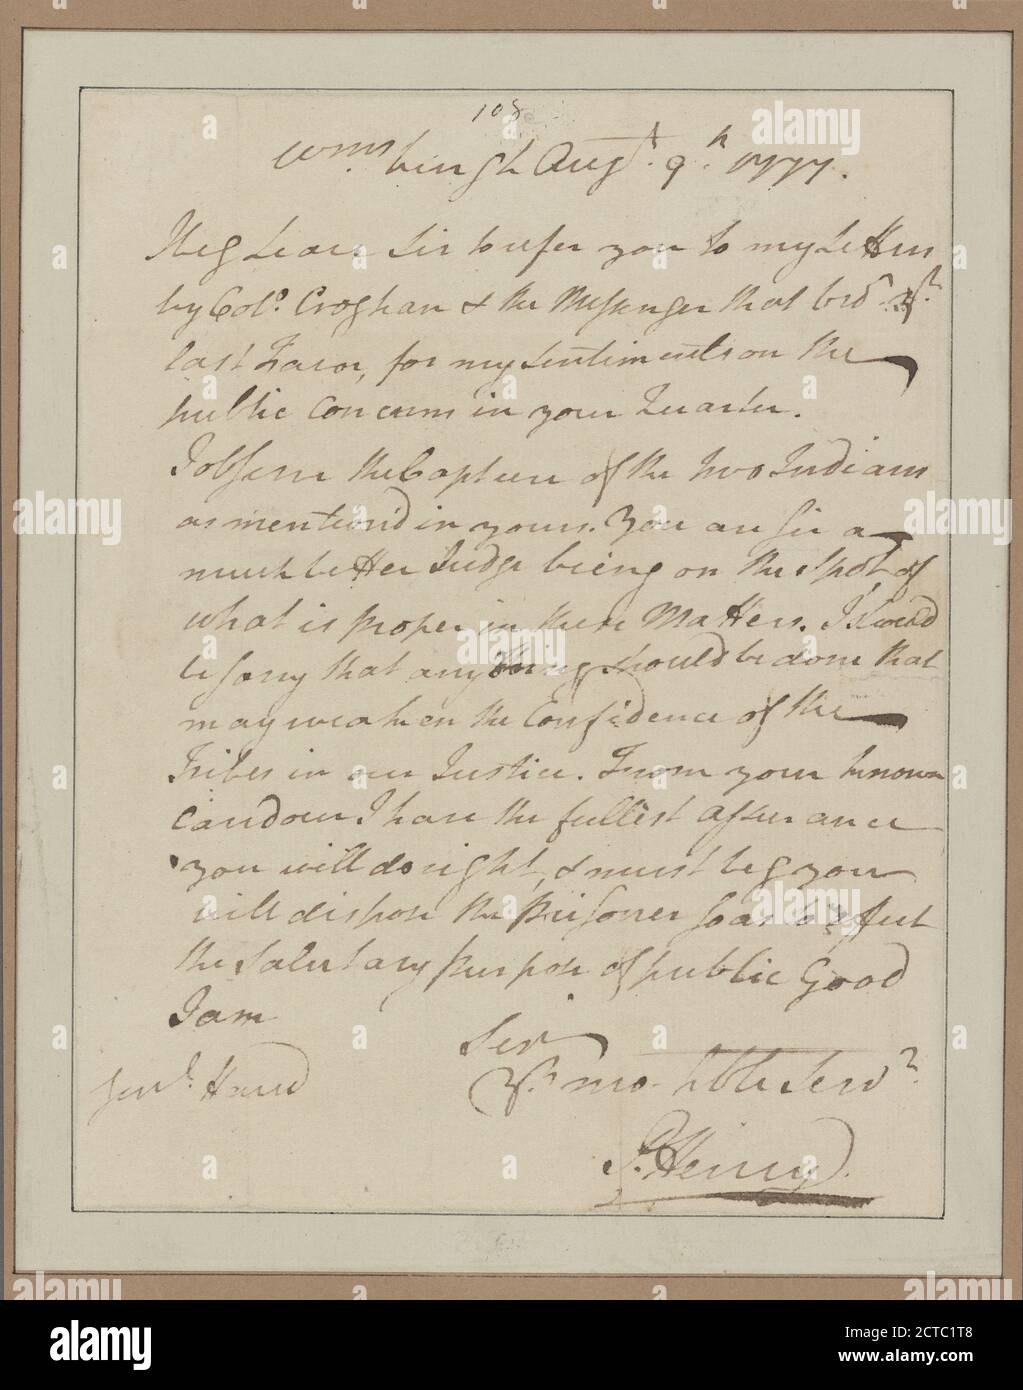 108
Wmsburgh Augt. 9h 1777.
I beg Leave Sir to refer you to my Letters
by Colo. Croghan & the Messenger that brot. yr.
last Favor, for my sentiments on the
public Concerns in your Quarter.
I observe the Capture of the two Indians
as mention'd in yours. You are Sir a
much better Judge being on the Spot, of
what is proper in these Matters. I should
be sorry that any thing should be done that
may weaken the Confidence of the
Tribes in our Justice. From your known
Candour I have the fullest Assurance
you will do right, & must beg you
will dispose the Prisoners so as to effect
the salutary purpose of public Good
I am
Sir
Yr. mo. hble Servt.
P. Henry
Genl. Hand
alamy
Image ID: 2CTC1T8
www.alamy.com